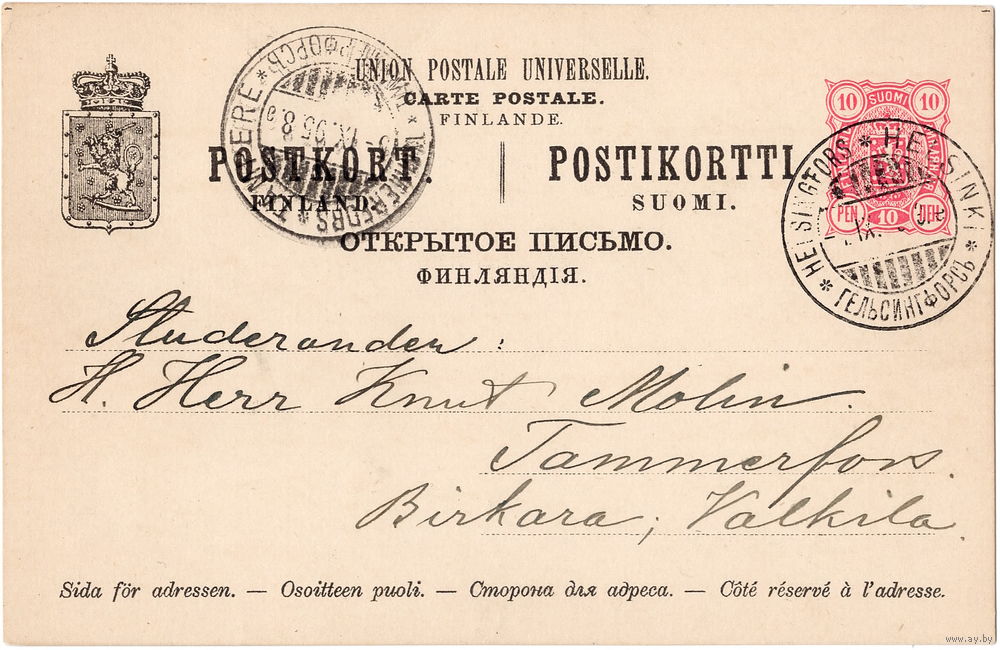 UNION POSTALE UNIVERSELLE.
CARTE POSTALE.
FINLANDE.
POSTKORT. POSTIKORTTI
FINLAND. SUOMI.
ОТКРЫТОЕ ПИСЬМО.
ФИНЛЯНДІЯ.
10 SUOMI 10
PEN 10 ПЕН
HELSINGFORS * HELSINKI * ГЕЛЬСИНГФОРСЪ *
IX.
TAMMERFORS * TAMPERE *
Studeranden:
H. Herr Knut Molin.
Tammerfors.
Birkara, Valkila.
Sida för adressen. — Osoitteen puoli. — Сторона для адреса. — Côté réservé à l'adresse.
www.ay.by